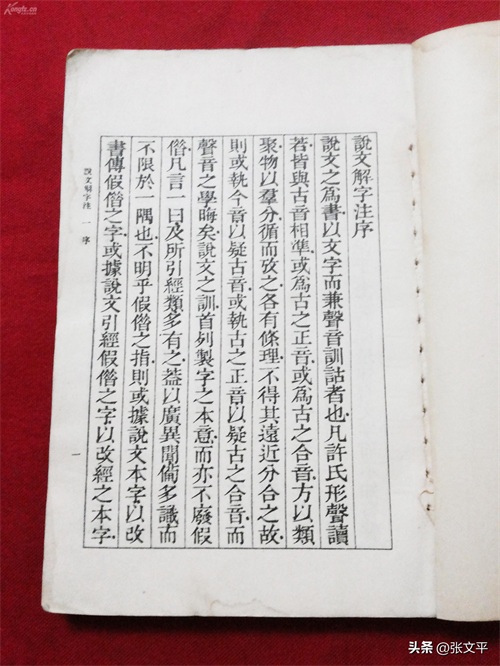 說文解字注序
說文之為書以文字而兼聲音訓詁者也凡許氏形聲讀
若皆與古音相準或為古之正音或為古之合音方以類
聚物以羣分循而攷之各有條理不得其遠近分合之故
則或執今音以疑古音或執古之正音以疑古之合音而
聲音之學晦矣說文之訓首列製字之本意而亦不廢假
借凡言一曰及所引經類多有之葢以廣異聞僃多識而
不限於一隅也不明乎假借之指則或據說文本字以改
書傳假借之字或據說文引經假借之字以改經之本字
說文解字注 一 序
一
Kongfz.cn
头条 @张文平